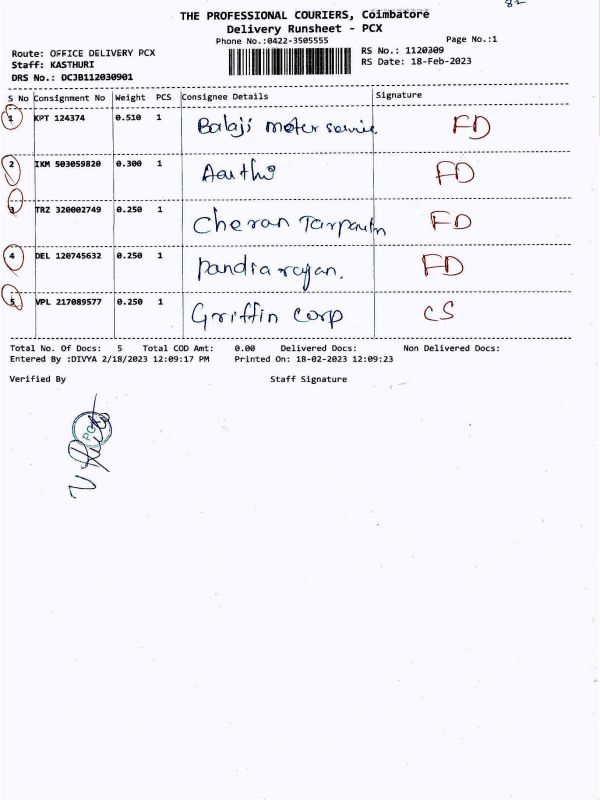 82
THE PROFESSIONAL COURIERS, Coimbatore
Delivery Runsheet - PCX
Phone No.:0422-3505555
Page No.:1
Route: OFFICE DELIVERY PCX
RS No.: 1120309
Staff: KASTHURI
RS Date: 18-Feb-2023
DRS No.: DCJB112030901
S No Consignment No Weight PCS Consignee Details Signature
1 KPT 124374 0.510 1 Balaji moter servie. FD
2 IKM 503059820 0.300 1 Aarthi FD
3 TRZ 320002749 0.250 1 Cheran Tarpaulin FD
4 DEL 120745632 0.250 1 Pandiarajan. FD
5 VPL 217089577 0.250 1 Griffin corp CS
Total No. Of Docs: 5 Total COD Amt: 0.00 Delivered Docs: Non Delivered Docs:
Entered By :DIVYA 2/18/2023 12:09:17 PM Printed On: 18-02-2023 12:09:23
Verified By Staff Signature
PCX